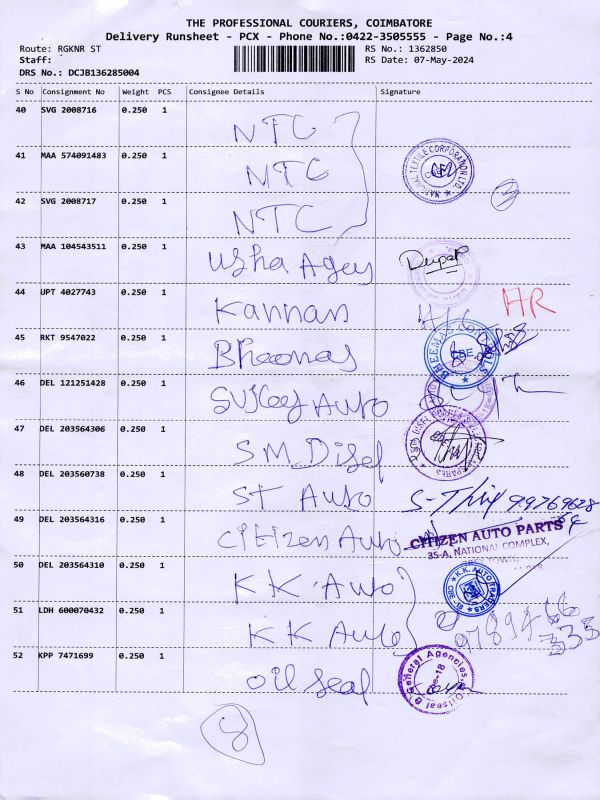 THE PROFESSIONAL COURIERS, COIMBATORE
Delivery Runsheet - PCX - Phone No.:0422-3505555 - Page No.:4
Route: RGKNR ST RS No.: 1362850
Staff: RS Date: 07-May-2024
DRS No.: DCJB136285004
S No Consignment No Weight PCS Consignee Details Signature
40 SVG 2008716 0.250 1 NTC
41 MAA 574091483 0.250 1 NTC NATIONAL TEXTILE CORPORATION LTD.
42 SVG 2008717 0.250 1 NTC 3
43 MAA 104543511 0.250 1 Usha Agey Deepak
44 UPT 4027743 0.250 1 Kannan HR
45 RKT 9547022 0.250 1 Bheemas BHEEMAS CBE
46 DEL 121251428 0.250 1 Auto
47 DEL 203564306 0.250 1 SM Disel
48 DEL 203560738 0.250 1 ST Auto
49 DEL 203564316 0.250 1 Citizen Auto CITIZEN AUTO PARTS
35-A, NATIONAL COMPLEX,
50 DEL 203564310 0.250 1 KK Auto K.K. AUTO TRADERS
51 LDH 600070432 0.250 1 KK Auto
52 KPP 7471699 0.250 1 Oil Seal Oilseal & General Agencies
8